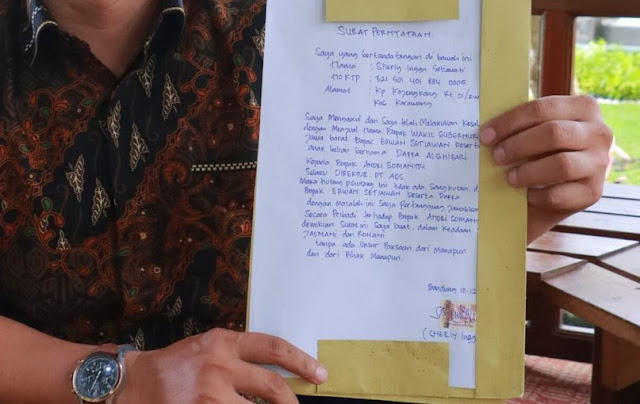 SURAT PERNYATAAN.
Saya yang bertanda tangan di bawah ini
Nama : Sherly Ingga Setiawati
NO KTP : 321 501 401 884 0005
Alamat : Kp Kojengkang Rt 01/RW
Kab Karawang
Saya Mengakui dan Saya telah Melakukan Kesal
dengan Menjual nama Bapak WAKIL GUBERNUR
Jawa barat Bapak ERWAN SETIAWAN beserta
anak beliau bernama DAFFA ALGHIFARI
Kepada Bapak ANDRI SOMANTRI
Selaku DIREKTUR PT ADS.
Maka hutang piutang ini tidak ada Sangkutan d
Bapak ERWAN SETIAWAN beserta DAFFA
dengan Masalah ini Saya Pertanggung jawabkan
Secara Pribadi terhadap Bapak ANDRI SOMAN
demikian Surat ini Saya buat, dalam Keadaan
JASMANI dan ROHANI
tanpa ada Unsur Paksaan dari Manapun
dan dari Pihak Manapun.
Bandung 12-12
(SHERLY Ingg